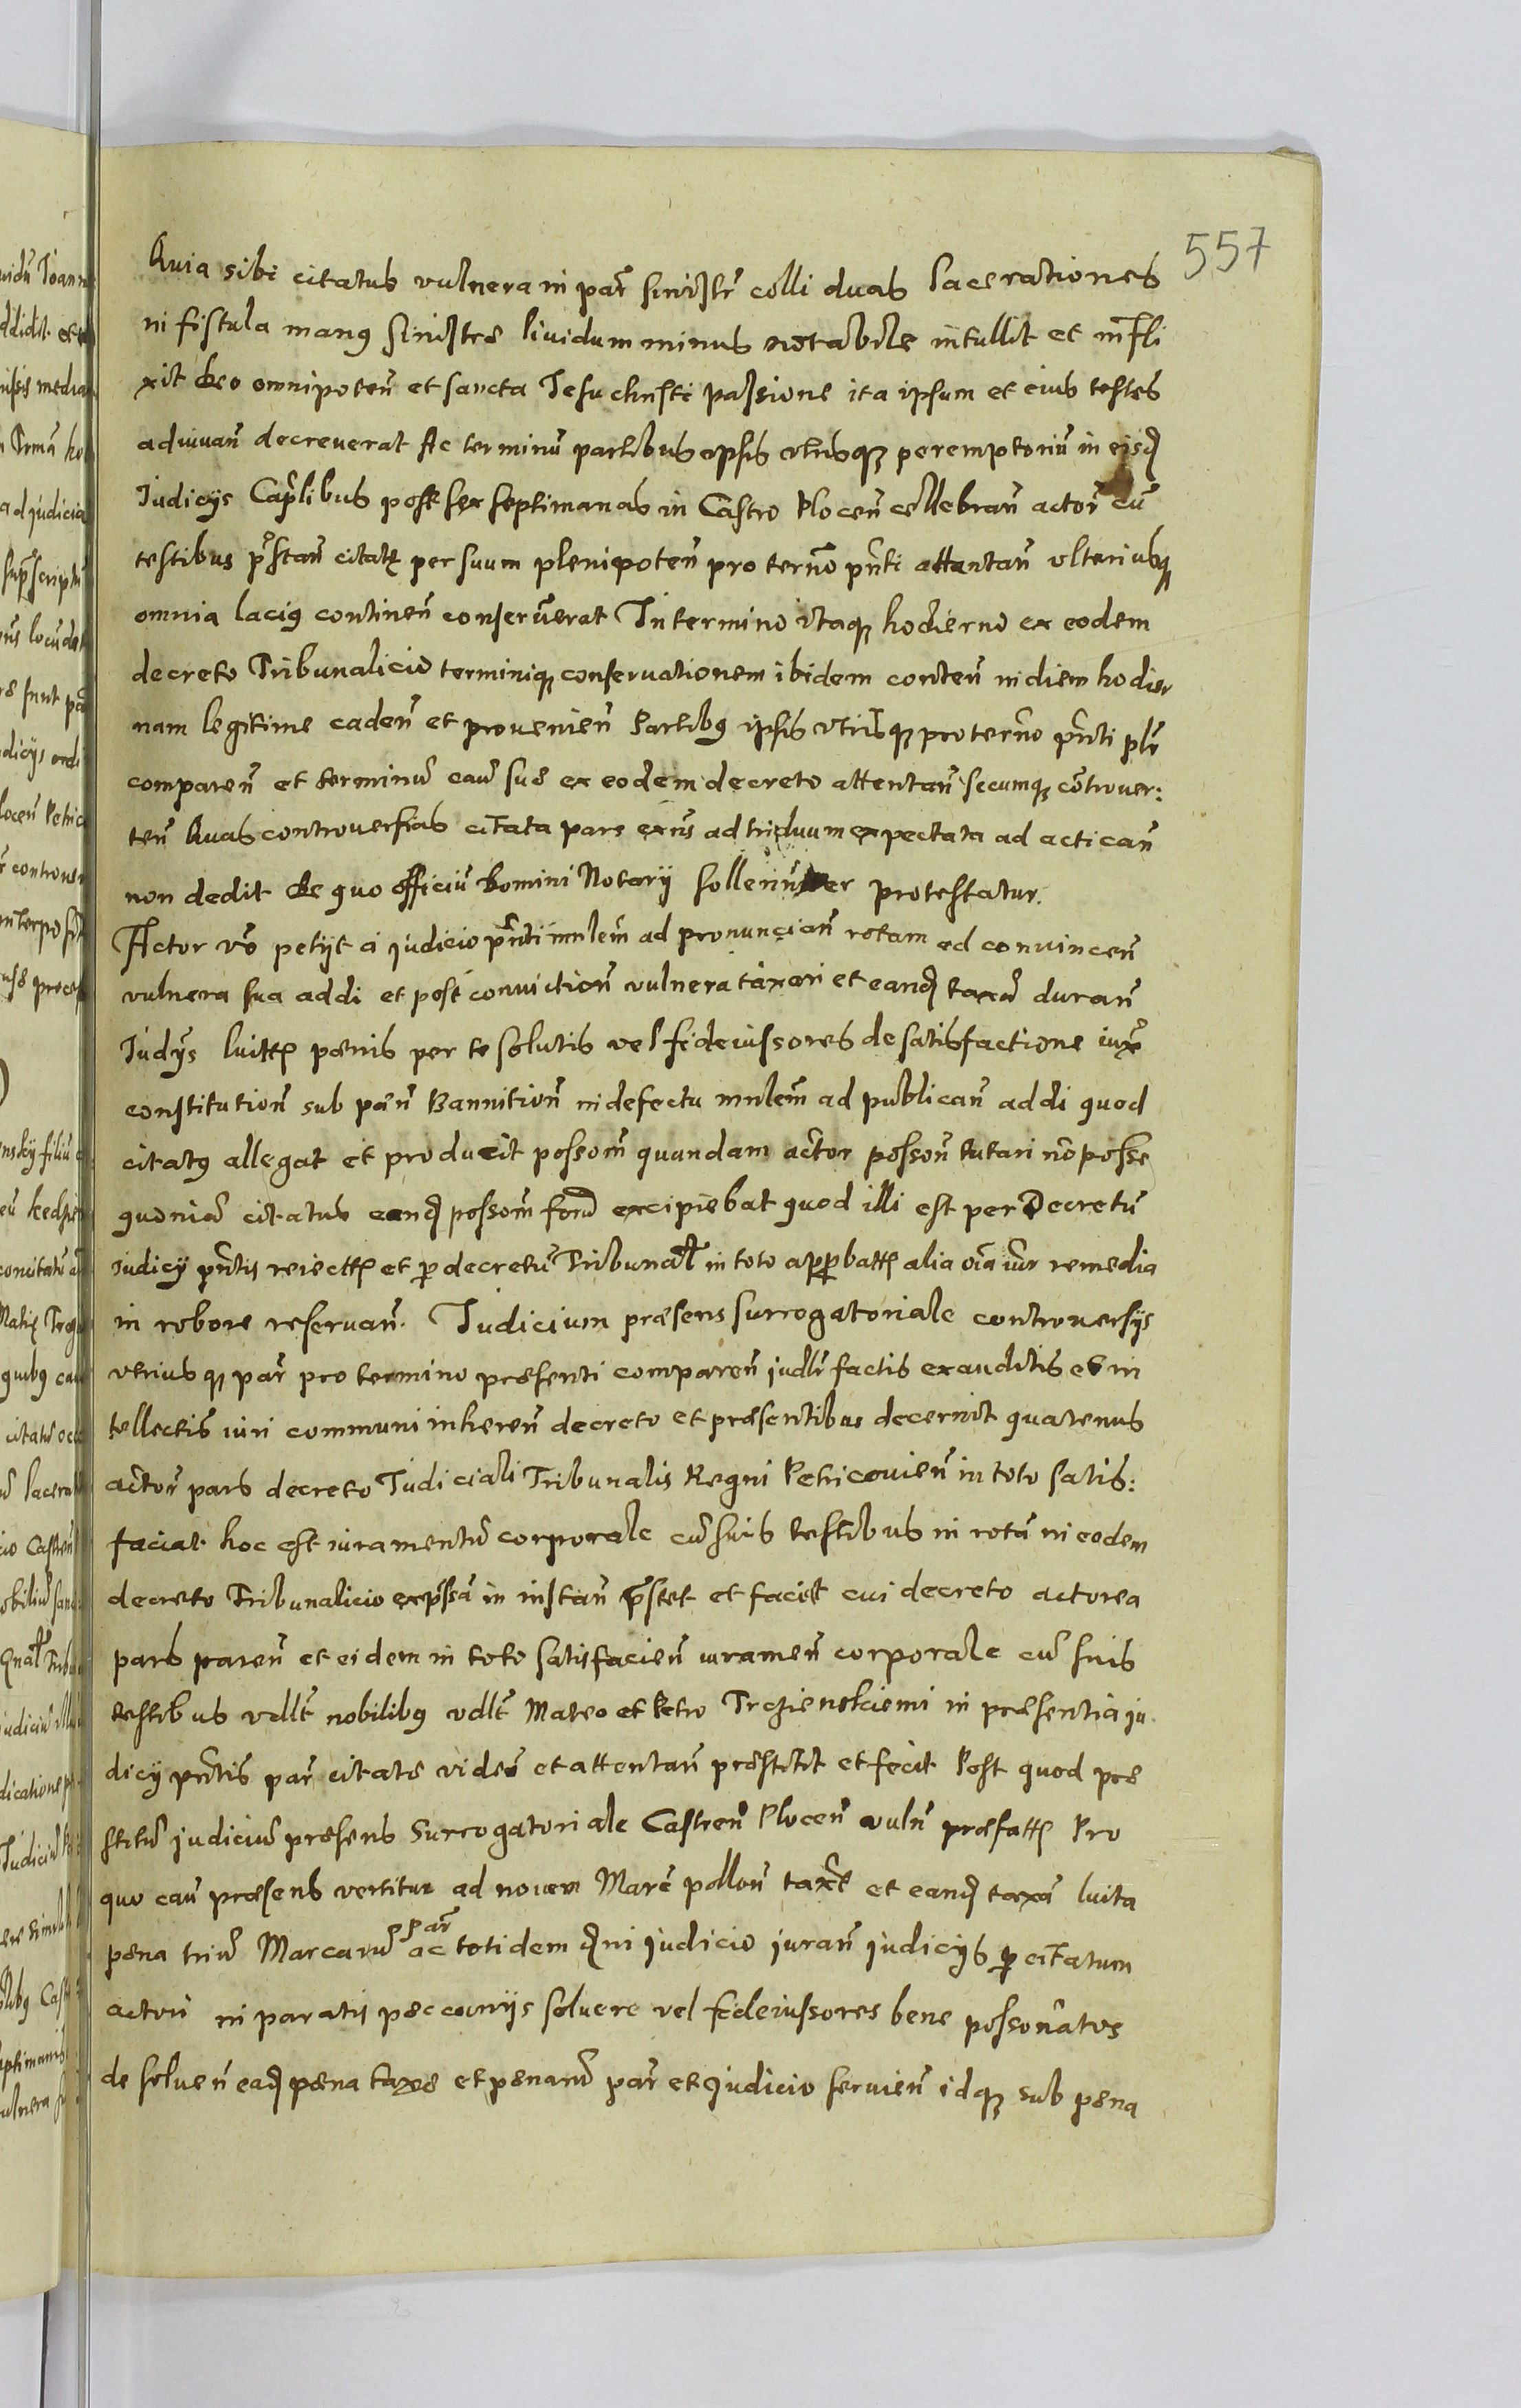 557
Quia sibi citatus vulnera in par̃ sinistr̃ colli duas lacerationes
in fistula manus sinistre lividum minus notabile intullit et infli
xit deo omnipoten̄ et sancta Jesu christi passione ita ipsum et eius testes
adiuuan̄ decreuerat Ac terminū partibus ipsis utrisq̢ peremptoriū in eisd̄
Judicys Cap̄libus post sex septimanas in Castro Plocen̄ cellebran̄ actor̄ cū
testibus p̄stan̄ citat̢ per suum plenipoten̄ pro ter̄no pn̄ti attentan̄ ulteriusq̢
omnia lacius continen̄ conseruauerat In termino itaq̢ hodierno ex eodem
decreto Tribunalicio terminiq̢ conseruationem ibidem conten̄ in diem hodier
nam legitime caden̄ et provenien̄ Partibus ipsis utrisq̢ pro ter̄no pn̄ti pl̄r
comparen̄ et terminū cau̅ sue ex eodem decreto attentan̄ secumq̢ cōntrover:
ten̄ Quas controversias citata pars ex̄ns ad triduum expectata ad actican̄
non dedit de quo officiū Domini Notarij sollenniter protestatur.
Actor vō petijt a judicio pn̄ti mnlem̄ ad pronuncian̄ rotam ad convincen̄
vulnera sua addi et post conviction̄ vulnera taxari et eand̄ taxā duran̄
Judijs luitt̢ pænis per te solutis vel fideiussores de satisfactione iux̄
constitution̄ sub pæn̄ Bannition̄ in defectu mnlem̄ ad publican̄ addi quod
citatus allegat et producit possom̄ quandam actōr posson̄ tutari nō posse
quoniā citatus eand̄ possom̄ forū excipiebat quod illi est per Decretū
iudicij pn̄tis reiectt̢ et p̱ decretū Tribunal̄ in toto app̱batt̢ alia oīa iur̄ remedia
in robore reservan̄. Judicium præsens surrogatoriale controuersijs
utriusq̢ par̄ pro termino præsenti comparen̄ iudl̄r factis exauditis et in
tellectis iuri communi inheren̄ decreto et præsentibus decernit quatenus
actor̄ pars decreto Judiciali Tribunalis Regni Petricovien̄ in toto satis:
faciat hoc est iuramentū corporale cū suis testibus in rotā in eodem
decreto Tribunalicio exp̄ssā in instan̄ p̄stet et faciet cui decreto actorea
pars paren̄ et eidem in toto satisfacien̄ iuramen̄ corporale cū suis
testibus vdl̄t nobilibus vdl̄t Mateo et Petro Trczienskiemi in præsentia ju.
dicij pn̄tis par̄ citate viden̄ et attentan̄ præstitit et fecit Post quod præ
stitū judiciū præsens Surrogatoriale Castren̄ Plocen̄ vuln̄ præfatt̢ Pro
quo cau̅ præsens vertitur ad novem Marc̄ pollon̄ tax̄t et eand̄ taxā luita
pæna triū Marcarū par̄ ac totidem d̄ni judicio juran̄ judicijs p̱ citatum
actori in paratis peccuniis soluere vel fideiussores bene possonatos
de solven̄ ead̄ pæna taxæ et pænarū par̄ et judicio servien̄ idq̢ sub pæna